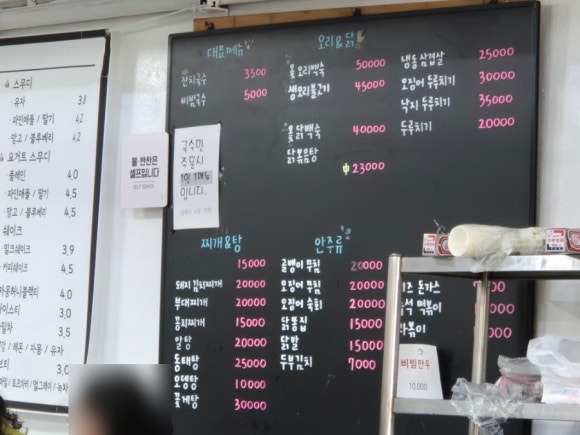 스무디
· 유자 3,8
· 파인애플 / 딸기 4,2
· 망고 / 블루베리 4,2
요거트 스무디
· 플레인 4,0
· 파인애플 / 딸기 4,5
· 망고 / 블루베리 4,5
쉐이크
· 밀크쉐이크 3,9
· 커피쉐이크 4,5
4,0
3,5
레몬 / 자몽 / 유자
3,0
물·반찬은
셀프입니다
SELF SERVICE
국수만
주문시
1인 1메뉴
입니다.
대표메뉴
잔치국수 3500
비빔국수 5000
오리&닭
오리백숙 50000
생오리불고기 45000
닭백숙 40000
닭볶음탕
23000
냉동삼겹살 25000
오징어 두루치기 30000
낙지 두루치기 35000
두루치기 20000
찌개&탕
15000
돼지김치찌개 20000
부대찌개 20000
꽁치찌개 15000
알탕 20000
동태탕 25000
오뎅탕 10000
꽃게탕 30000
안주류
골뱅이 무침 20000
오징어 무침 20000
오징어 숙회 20000
닭똥집 15000
닭발 15000
두부김치 7000
즈 돈가스
떡볶이
볶이
비빔만두
10,000